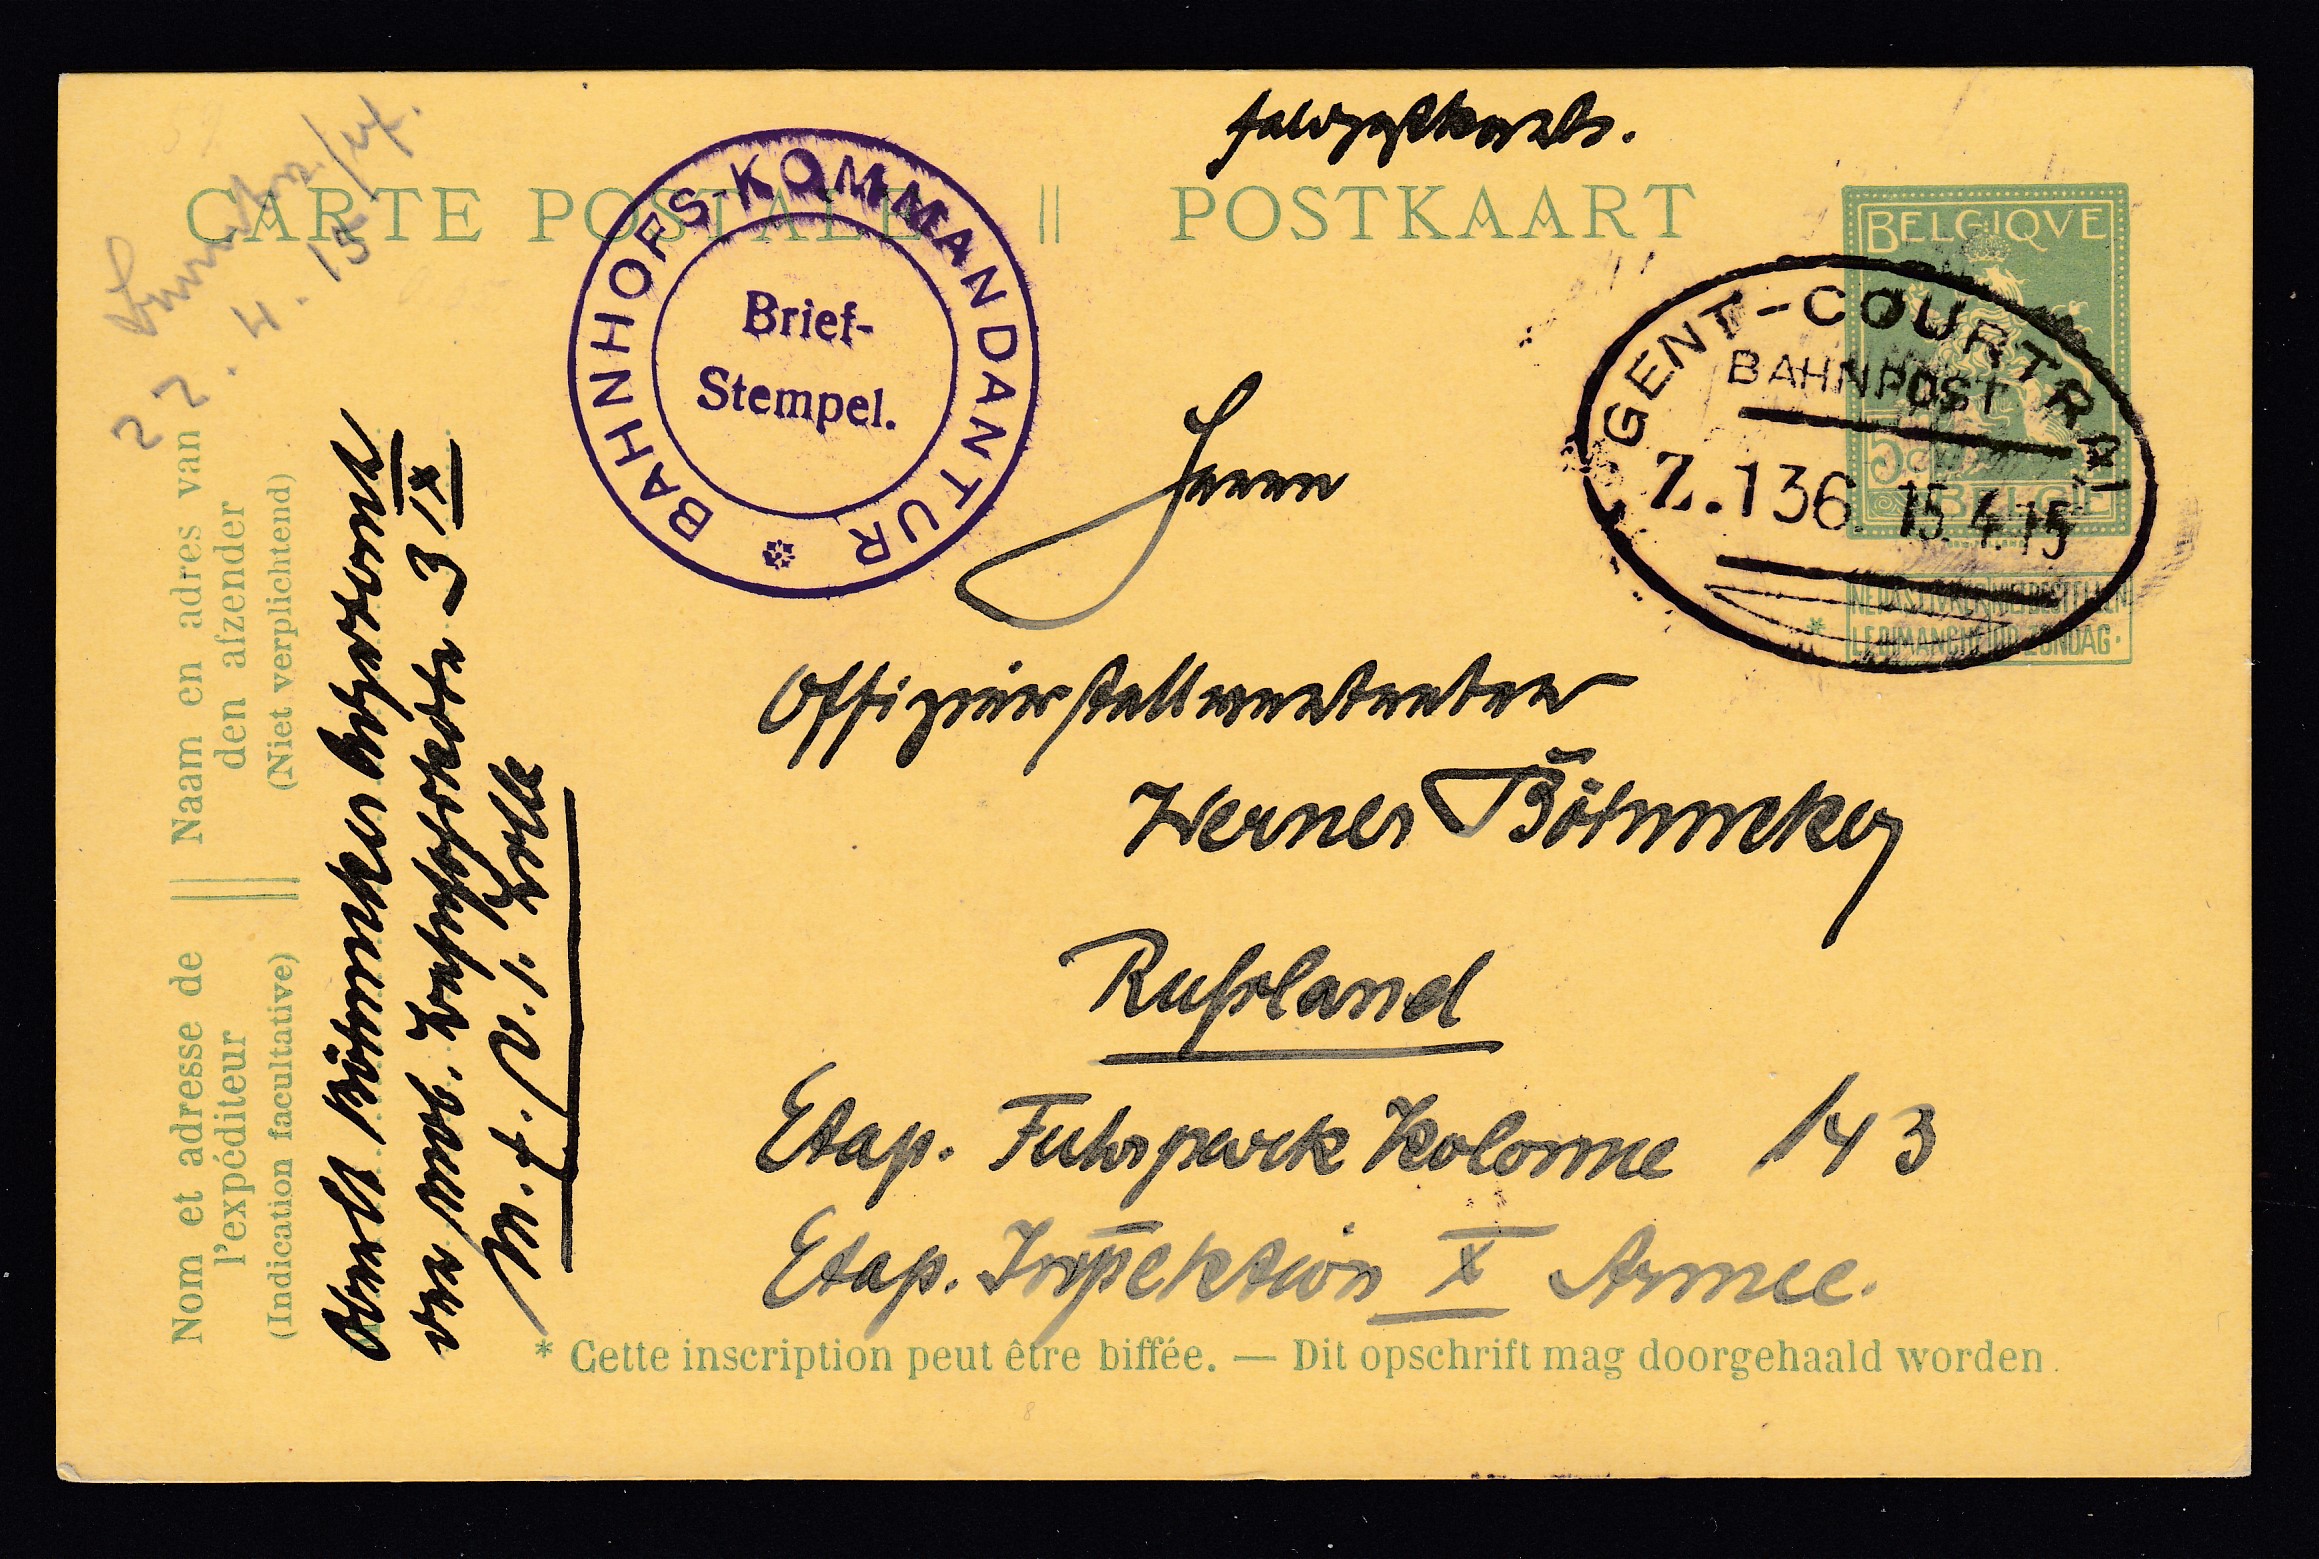 Feldpostkarte.
CARTE POSTALE || POSTKAART
BELGIQVE
5
BELGIË
NE PAS LIVRER NIET BESTELLEN
LE DIMANCHE OP ZONDAG.
*
BAHNHOFS-KOMMANDANTUR
Brief-
Stempel.
GENT-COURTRAI
BAHNPOST
Z.136. 15.4.15
Herrn
Offizierstellvertreter
Werner Böhmcker
Rußland
Etap. Fuhrpark Kolonne 143
Etap. Inspektion X Armee.
22.4.15
Naam en adres van
den afzender
(Niet verplichtend)
Nom et adresse de
l'expéditeur
(Indication facultative)
Oberlt Böhmcker
der mob. Bahnhofskdtr 3 IX
M. f. V. 1.
* Cette inscription peut être biffée. — Dit opschrift mag doorgehaald worden.